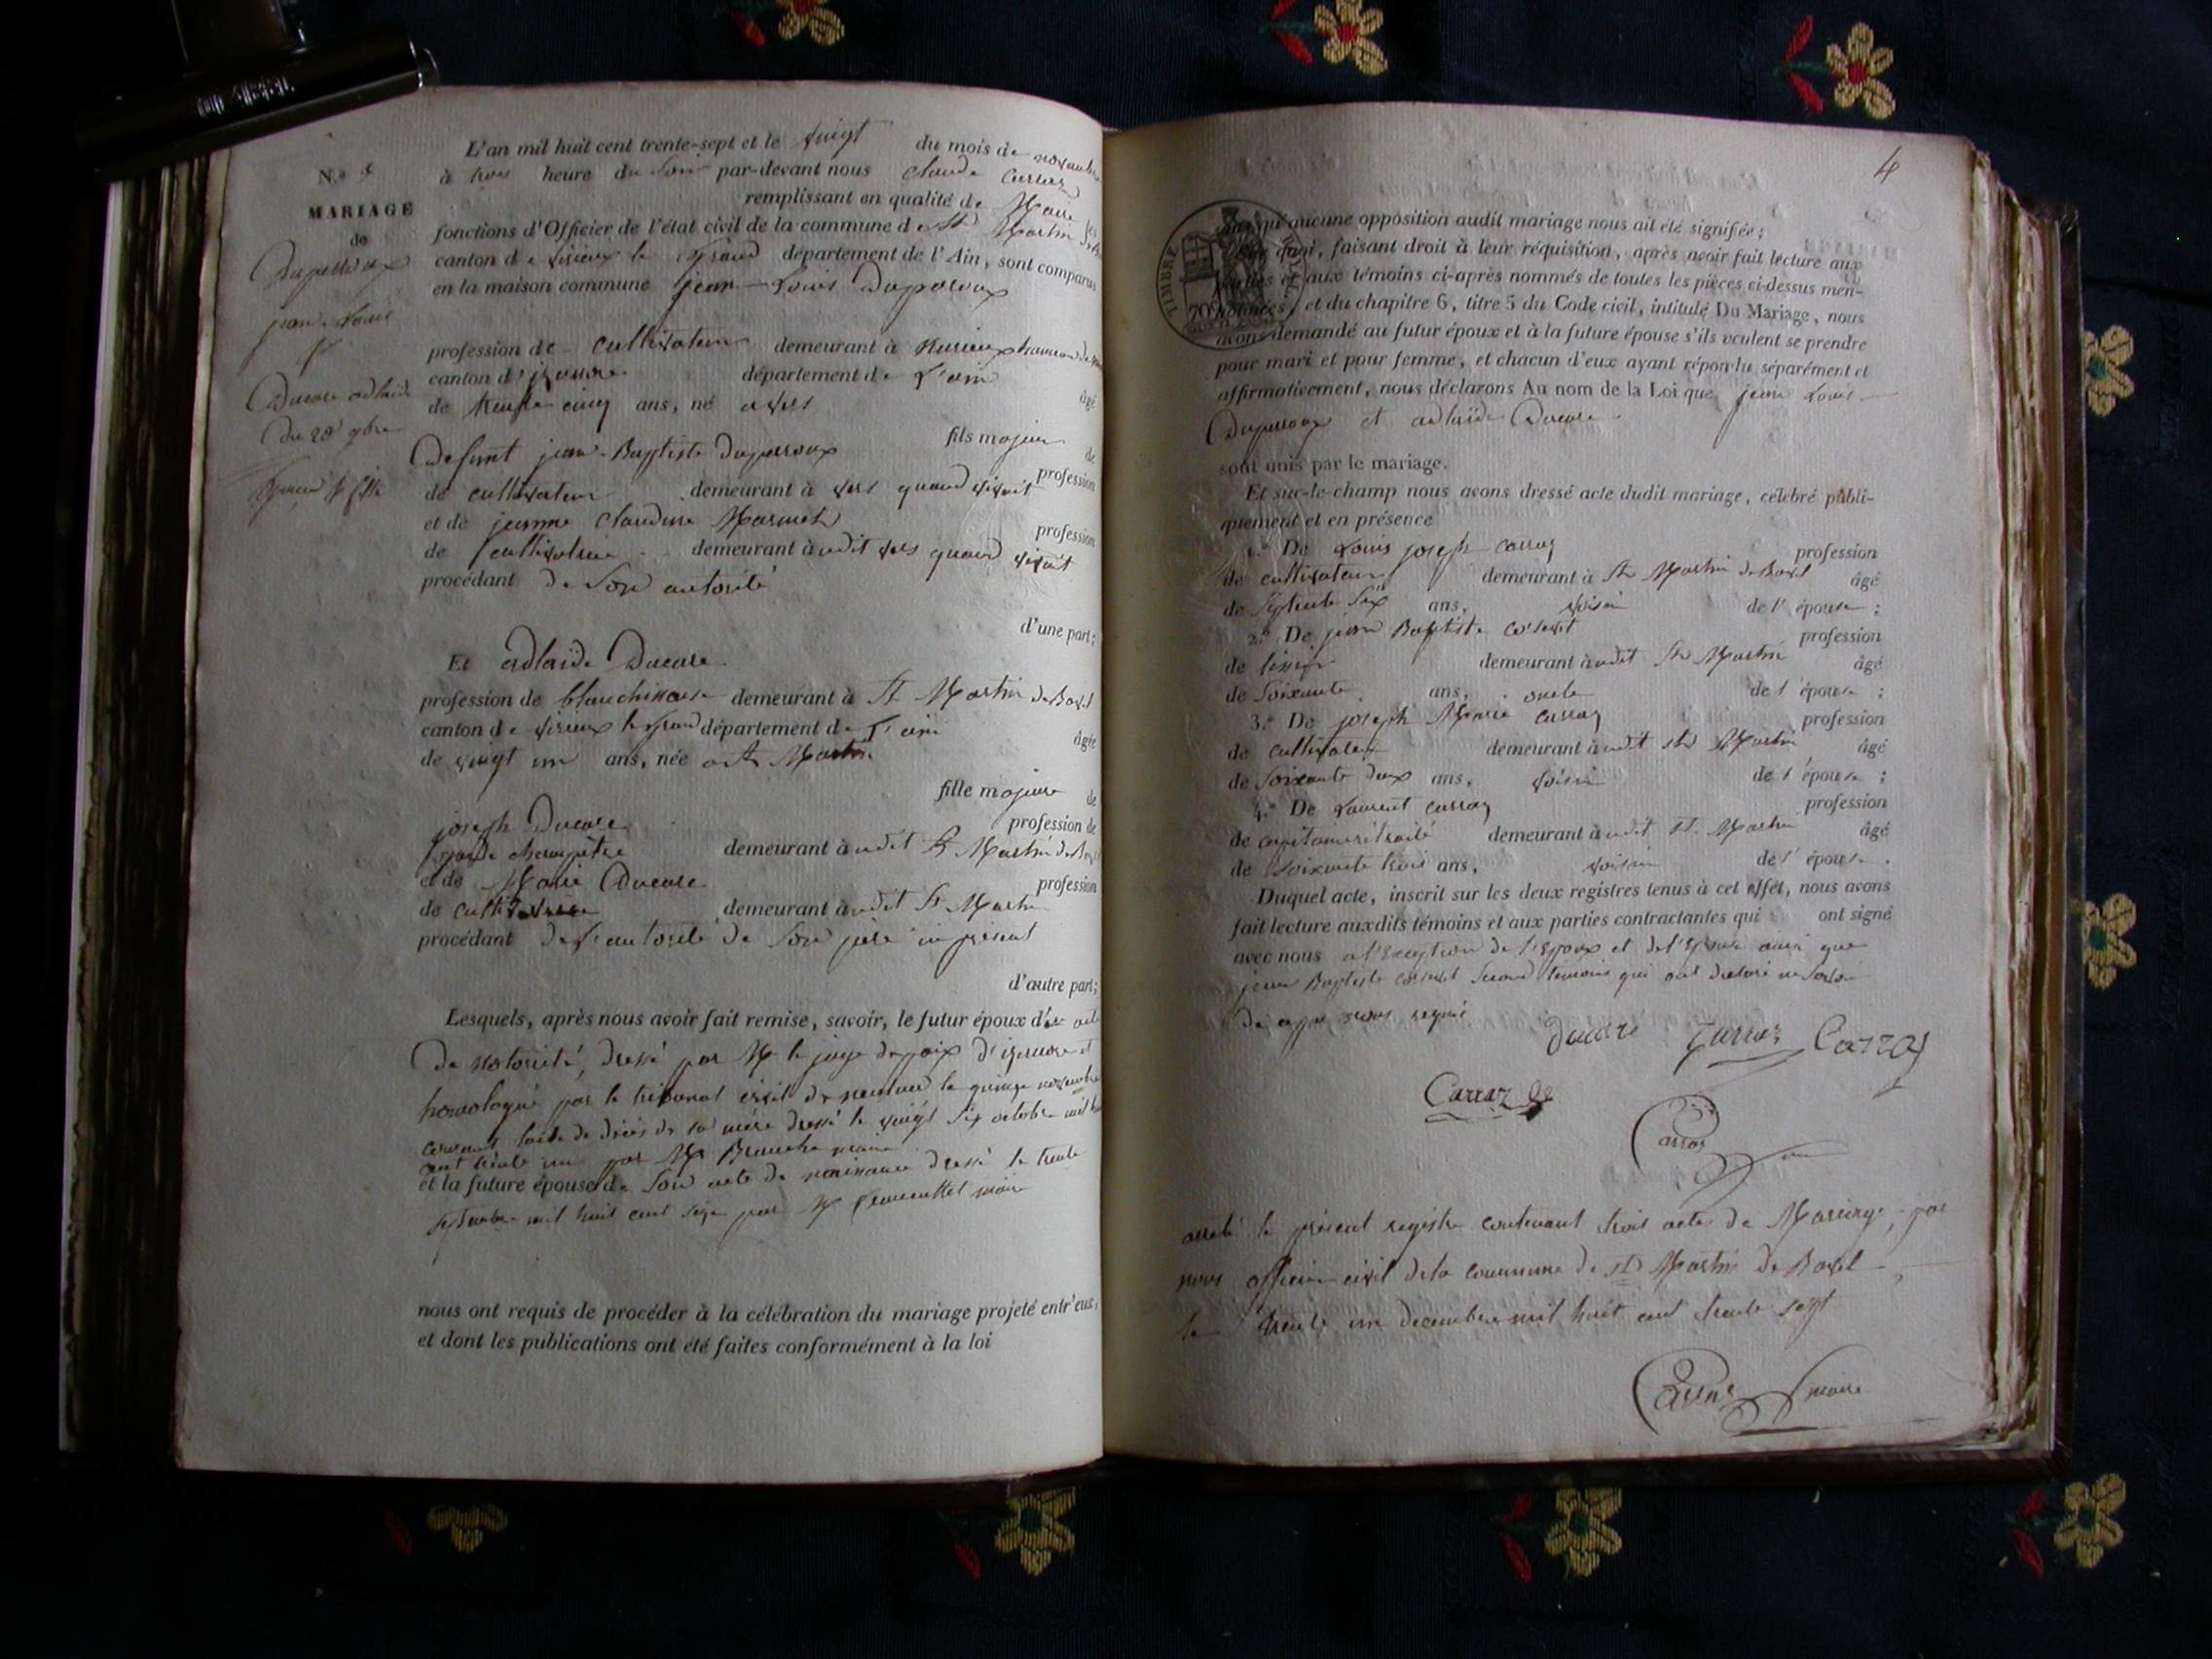 L'an mil huit cent trente-sept et le vingt du mois de novembre
N.o
à trois heure du Soir par-devant nous Claude Carraz
MARIAGE
remplissant en qualité de Maire les
de
fonctions d'Officier de l'état civil de la commune de St Martin
canton de virieux le Grand département de l'Ain, sont comparus
en la maison commune jean-Louis Duperoux
jean-Louis
&
Ducare adlaïde
Du 20 9bre
profession de cultivateur demeurant à hameau de
canton d'izernore département de L'ain âgé
de trente cinq ans, né a vers
fils majeur de
Defunt jean-Baptiste Duperroux profession
de cultivateur demeurant à vers quand vivait
et de jeanne Claudine profession
de cultivatrice demeurant à udit vers quand vivait
procédant de Son autorité
d'une part;
Et adlaïde Ducare
profession de blanchisseuse demeurant à St Martin de Bavel
canton de virieux le Grand département de L'ain âgée
de vingt un ans, née a St Martin
fille majeure de
joseph Ducare profession de
garde champêtre demeurant à udit St Martin de Bavel
et de Marie Ducare profession
de cultivatrice demeurant à udit St Martin
procédant de L'autorité de Son père ici présent
d'autre part;
Lesquels, après nous avoir fait remise, savoir, le futur époux d'un acte
de notoriété, dressé par Mr le juge de paix d'izernore et
homologué par le tribunal civil de nantua le quinze novembre
courant l'acte de décès de sa mère dressé le vingt Six octobre mil huit
cent trente un par Mr maire
et la future épouse de Son acte de naissance dressé le trente
septembre mil huit cent seize par Mr maire
nous ont requis de procéder à la célébration du mariage projeté entr'eux,
et dont les publications ont été faites conformément à la loi
4
TIMBRE
70
sans qu'aucune opposition audit mariage nous ait été signifiée;
Sur quoi, faisant droit à leur réquisition, après avoir fait lecture aux
parties et aux témoins ci-après nommés de toutes les pièces ci-dessus men-
tionnées, et du chapitre 6, titre 5 du Code civil, intitulé Du Mariage, nous
avons demandé au futur époux et à la future épouse s'ils veulent se prendre
pour mari et pour femme, et chacun d'eux ayant répondu séparément et
affirmativement, nous déclarons Au nom de la Loi que jean Louis
Duperroux et adlaïde Ducare
sont unis par le mariage.
Et sur-le-champ nous avons dressé acte dudit mariage, célébré publi-
quement et en présence
1.o De Louis joseph Carraz profession
de cultivateur demeurant à St Martin de Bavel âgé
de Septente Six ans, voisin de l'épouse;
2.o De jean Baptiste profession
de demeurant à udit St Martin âgé
de Soixante ans, oncle de l'épouse;
3.o De joseph Marie Carraz profession
de cultivateur demeurant à udit St Martin âgé
de Soixante deux ans, voisin de l'épouse;
4.o De Laurent Carraz profession
de capitaine retraité demeurant à udit St Martin âgé
de Soixante trois ans, voisin de l'épouse.
Duquel acte, inscrit sur les deux registres tenus à cet effet, nous avons
fait lecture auxdits témoins et aux parties contractantes qui ont signé
avec nous a l'Exception de l'Epoux et de l'Epouse ainsi que
jean Baptiste Second temoin qui ont declaré ne Savoir
de ce requis
Ducare Carraz Carraz
Carraz
Carraz
arreté le présent registre contenant trois actes de Mariage, par
nous officier civil de la commune de St Martin de Bavel
le trente un decembre mil huit cent trente sept
Carraz maire